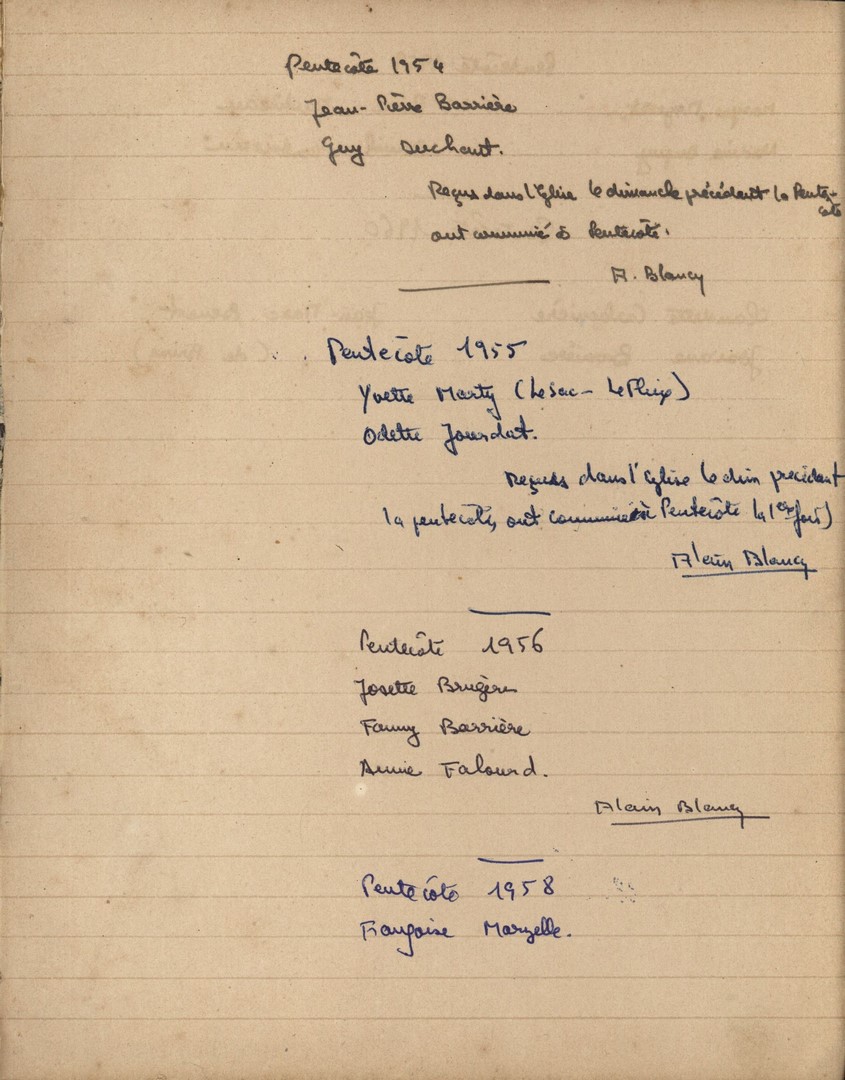 Pentecôte 1954
Jean-Pierre Barrière
Guy Duchant.
Reçus dans l'Eglise le dimanche précédant la Pente-
côte
ont communié à Pentecôte.
A. Blancy
Pentecôte 1955
Yvette Marty (Lesac - Le Fleix)
Odette Jourdat.
Reçues dans l'Eglise le dim précédant
la pentecôte, ont communié à Pentecôte la 1ère fois)
Alain Blancy
Pentecôte 1956
Josette Brugère
Fanny Barrière
Annie Falourd.
Alain Blancy
Pentecôte 1958
Françoise Marzelle.